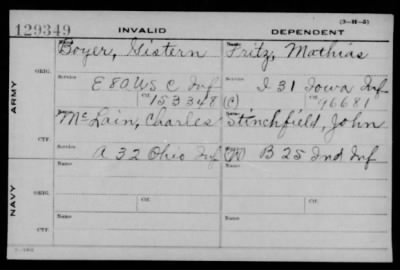 129349 INVALID DEPENDENT (3-H-5)
ARMY ORIG. Name Boyer, Gistern Name Fritz, Mathias
Service E 80 US C Inf Service I 31 Iowa Inf
Ctf. 153348 (C) Ctf. 76681
CTF. McLain, Charles Name Stinchfield, John
A 32 Ohio Inf B 25 Ind Inf
NAVY ORIG. Name Name
Service Ctf. Service Ctf.
CTF. Name Name